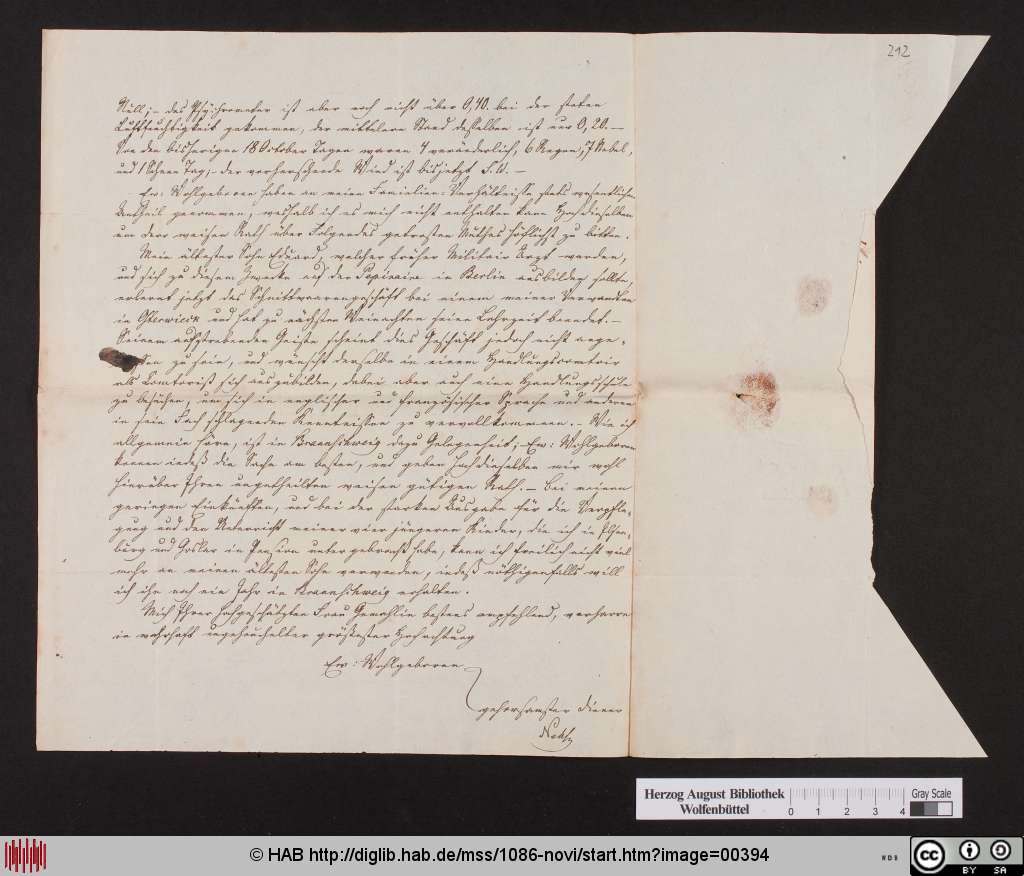 212
Null; – des Psychrometer ist aber noch nicht über 0,40. bei der steten
Luftfeuchtigkeit gekommen, der mittlere Stand desselben ist nur 0,20. –
Von den bisherigen 18 October Tagen waren 4 veränderlich, 6 Regen, 7 Nebel,
und 1 Schnee Tag, – der vorherrschende Wind ist bis jetzt S.W. –
Ew: Wohlgeboren haben an meinen Familien-Verhältnissen stets wesentlichen
Antheil genommen, weshalb ich es mich nicht enthalten kann Hochdieselben
um dero weisen Rath über Folgendes getrosten Muthes höflichst zu bitten.
Mein ältester Sohn Eduard, welcher früher Militair Arzt werden,
und sich zu diesem Zwecke auf der Pepiniere in Berlin ausbilden sollte,
erlernt jetzt das Schnittwaarengeschäft bei einem meiner Verwandten
in Osterwieck und hat zu nächsten Weinachten seine Lehrzeit beendet. –
Seinem aufstrebenden Geiste scheint dies Geschäft jedoch nicht ange-
zu sein, und wünscht derselbe in einem Handlungscomtoir
als Comtorist sich auszubilden, dabei aber auch eine Handlungsschule
zu besuchen, um sich in englischer und französischer Sprache und anderen
in sein Fach schlagenden Kenntnissen zu vervollkommnen. – Wie ich
allgemein höre, ist in Braunschweig dazu Gelegenheit; – Ew: Wohlgeboren
kennen indeß die Sache am besten, und geben Hochdieselben mir wohl
hierüber Ihren ungetheilten weisen gütigen Rath. – Bei meinen
geringen Einkünften, und bei der starken Ausgabe für die Verpfle-
gung und den Unterricht meiner vier jüngeren Kinder, die ich in Ilsen-
burg und Goslar in Pension untergebracht habe, kann ich freilich nicht viel
mehr an meinen ältesten Sohn verwenden, indeß nöthigenfalls will
ich ihn noch ein Jahr in Braunschweig erhalten.
Mich Ihrer hochgeschätzten Frau Gemahlin bestens empfehlend, verharre
in wahrhaft ungeheuchelter größester Hochachtung
Ew: Wohlgeboren
gehorsamster Diener
Nehse
Herzog August Bibliothek
Wolfenbüttel
0 1 2 3 4
Gray Scale
© HAB http://diglib.hab.de/mss/1086-novi/start.htm?image=00394
WDB
cc
BY SA